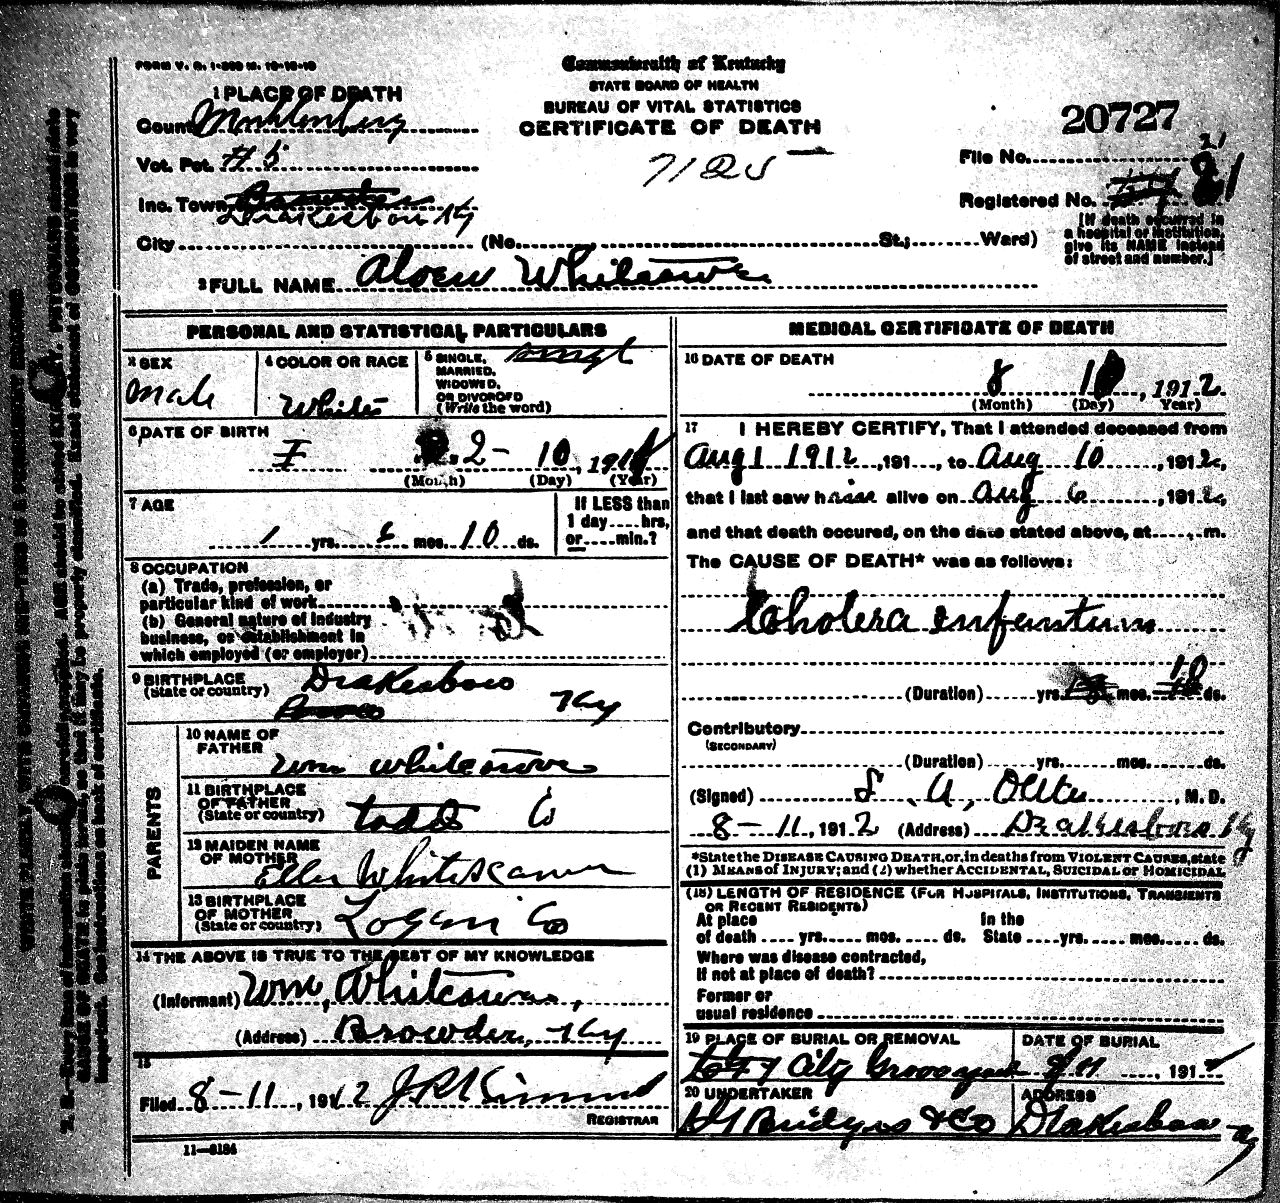 FORM V. S. 1-
Commonwealth of Kentucky
STATE BOARD OF HEALTH
BUREAU OF VITAL STATISTICS
CERTIFICATE OF DEATH
7125
20727
1 PLACE OF DEATH
County Muhlenberg
Vot. Pct. #5
Inc. Town Drakesboro Ky
City (No. St.; Ward)
File No. 21
Registered No. 81
[If death occurred in
a hospital or institution,
give its NAME instead
of street and number.]
2 FULL NAME
PERSONAL AND STATISTICAL PARTICULARS
3 SEX
Male
4 COLOR OR RACE
White
5 SINGLE, Singl
MARRIED,
WIDOWED,
OR DIVORCED
(Write the word)
6 DATE OF BIRTH
2 - 10, 191
(Month) (Day) (Year)
7 AGE
1 yrs. 6 mos. 10 ds.
If LESS than
1 day .... hrs,
or .... min.?
8 OCCUPATION
(a) Trade, profession, or
particular kind of work
(b) General nature of industry
business, or establishment in
which employed (or employer)
9 BIRTHPLACE
(State or country)
Drakesboro
Ky
PARENTS
10 NAME OF
FATHER
Wm
11 BIRTHPLACE
OF FATHER
(State or country)
Todd Co
12 MAIDEN NAME
OF MOTHER
Ellen
13 BIRTHPLACE
OF MOTHER
(State or country)
Logan Co
14 THE ABOVE IS TRUE TO THE BEST OF MY KNOWLEDGE
(Informant) Wm,
(Address) Browder, Ky
15
Filed 8-11, 1912
REGISTRAR
11-6184
MEDICAL CERTIFICATE OF DEATH
16 DATE OF DEATH
8 10, 1912
(Month) (Day) Year)
17 I HEREBY CERTIFY, That I attended deceased from
Aug 1 1912, 191 , to Aug 10, 1912,
that I last saw h alive on Aug 6, 1912,
and that death occured, on the date stated above, at m.
The CAUSE OF DEATH* was as follows:
Cholera infentum
(Duration) yrs. mos. 10 ds.
Contributory
(SECONDARY)
(Duration) yrs. mos. ds.
(Signed) , M. D.
8-11, 1912 (Address) Drakesboro Ky
*State the DISEASE CAUSING DEATH, or, in deaths from VIOLENT CAUSES, state
(1) MEANS OF INJURY; and (2) whether ACCIDENTAL, SUICIDAL or HOMICIDAL
(18) LENGTH OF RESIDENCE (FOR HOSPITALS, INSTITUTIONS, TRANSIENTS
OR RECENT RESIDENTS)
At place In the
of death .... yrs. .... mos. .... ds. State .... yrs. .... mos. .... ds.
Where was disease contracted,
if not at place of death?
Former or
usual residence
19 PLACE OF BURIAL OR REMOVAL
City Graveyard
DATE OF BURIAL
8/11, 191
20 UNDERTAKER
Bridges & Co
ADDRESS
Drakesboro Ky